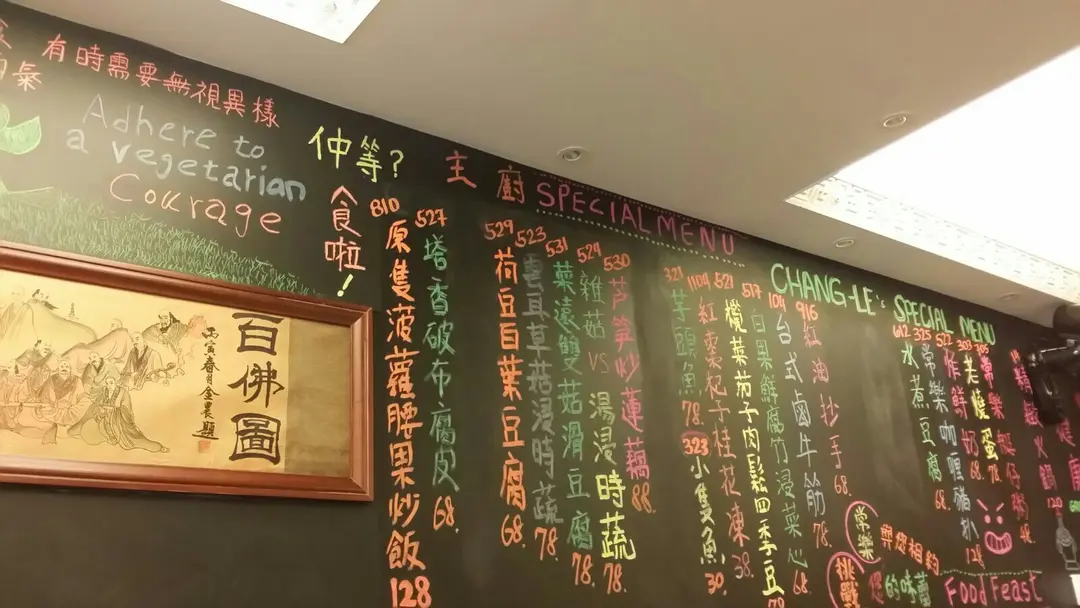 有時需要無視異樣
Adhere to
a vegetarian
Courage
仲等?
食啦!
百佛圖
丙寅春月金農題
主廚 SPECIAL MENU
810 原隻波蘿腰果炒飯 128
527 塔香破布腐皮 68.
529 荷豆百葉豆腐 68.
523 雲耳草菇浸時蔬 78.
531 菜遠雙菇滑豆腐 78.
524 雜菇VS湯浸時蔬 78.
530 芦笋炒蓮藕 88.
321 芋頭魚 78.
323 小隻魚 30.
1104 紅棗杞子桂花凍 38.
521 欖菜茄子肉鬆四季豆 78
517 白果鮮腐竹浸菜心 68
104 台式鹵牛筋 78.
916 紅油抄手 68.
CHANG-LE's SPECIAL MENU
612 水煮豆腐 68.
325 常樂咖喱豬扒 128
522 炸鮮奶 68.
303 老燒蛋 78.
305 常樂蚝仔粥
火鍋 120
常樂
與您相約
挑戰
您的味蕾
Food Feast